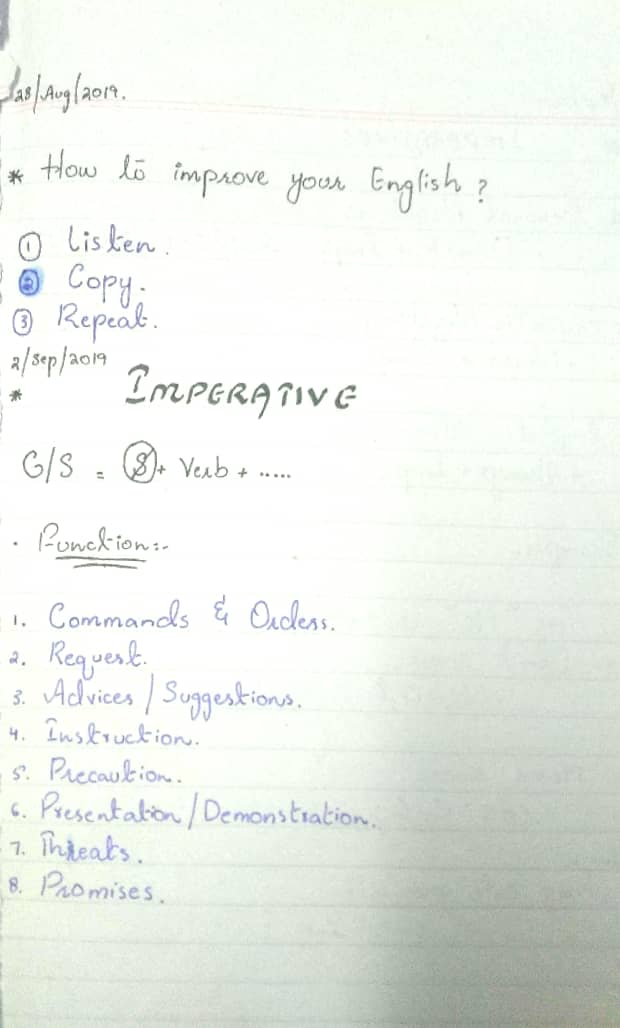 28/Aug/2019.
* How to improve your English ?
① Listen.
② Copy.
③ Repeat.
2/Sep/2019
* IMPERATIVE
G/S = Ⓢ + Verb + .....
. Function:-
1. Commands & Orders.
2. Request.
3. Advices / Suggestions.
4. Instruction.
5. Precaution.
6. Presentation / Demonstration.
7. Threats.
8. Promises.